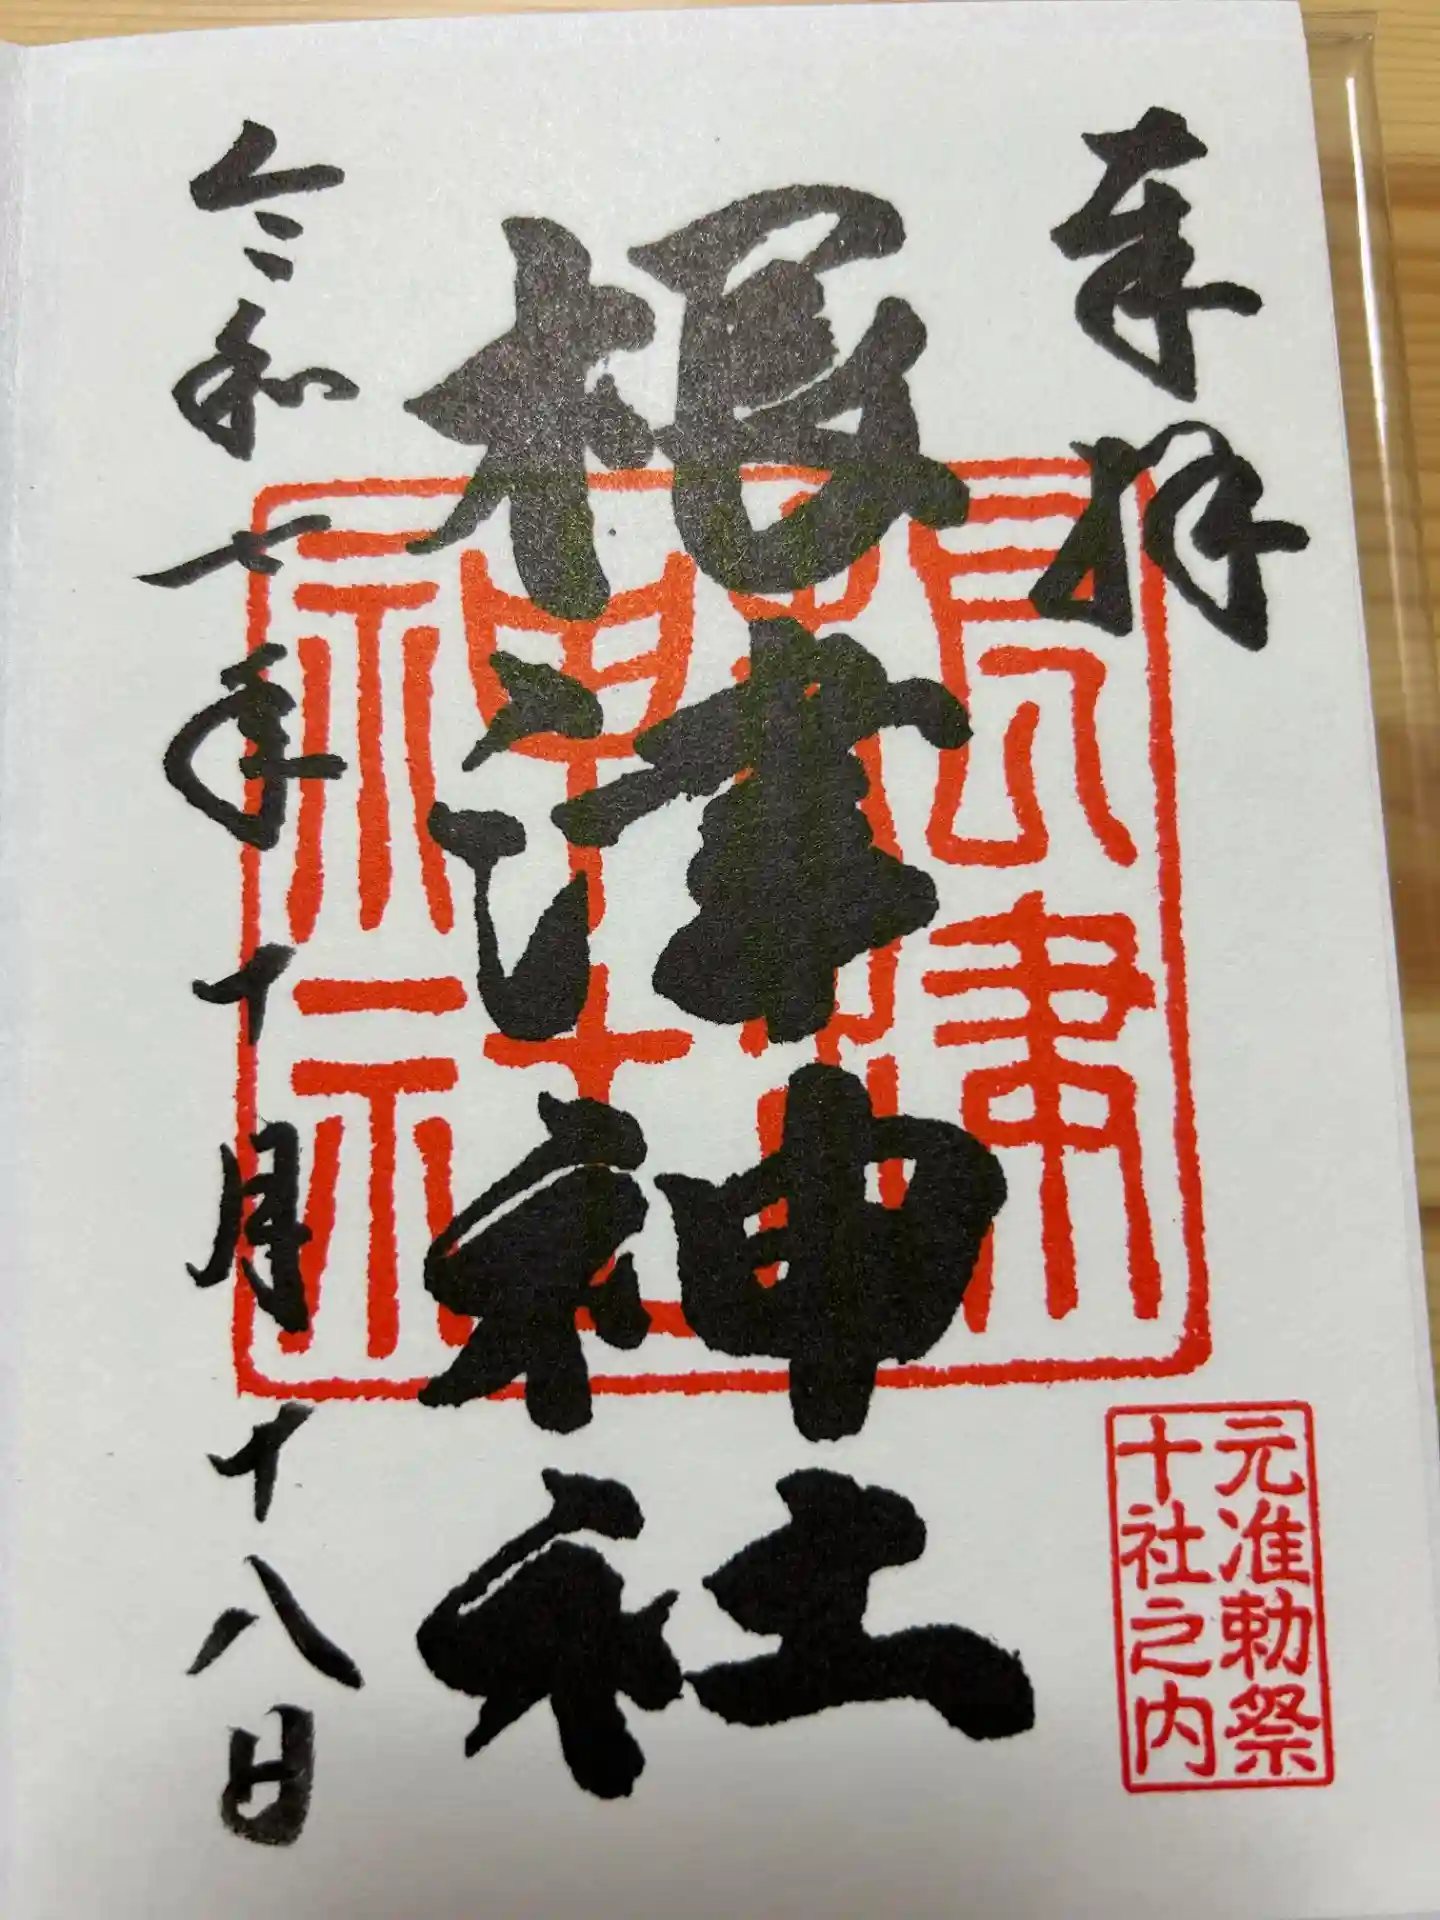 奉拝
根津神社
令和七年十月十八日
根津神社
元准勅祭
十社之内